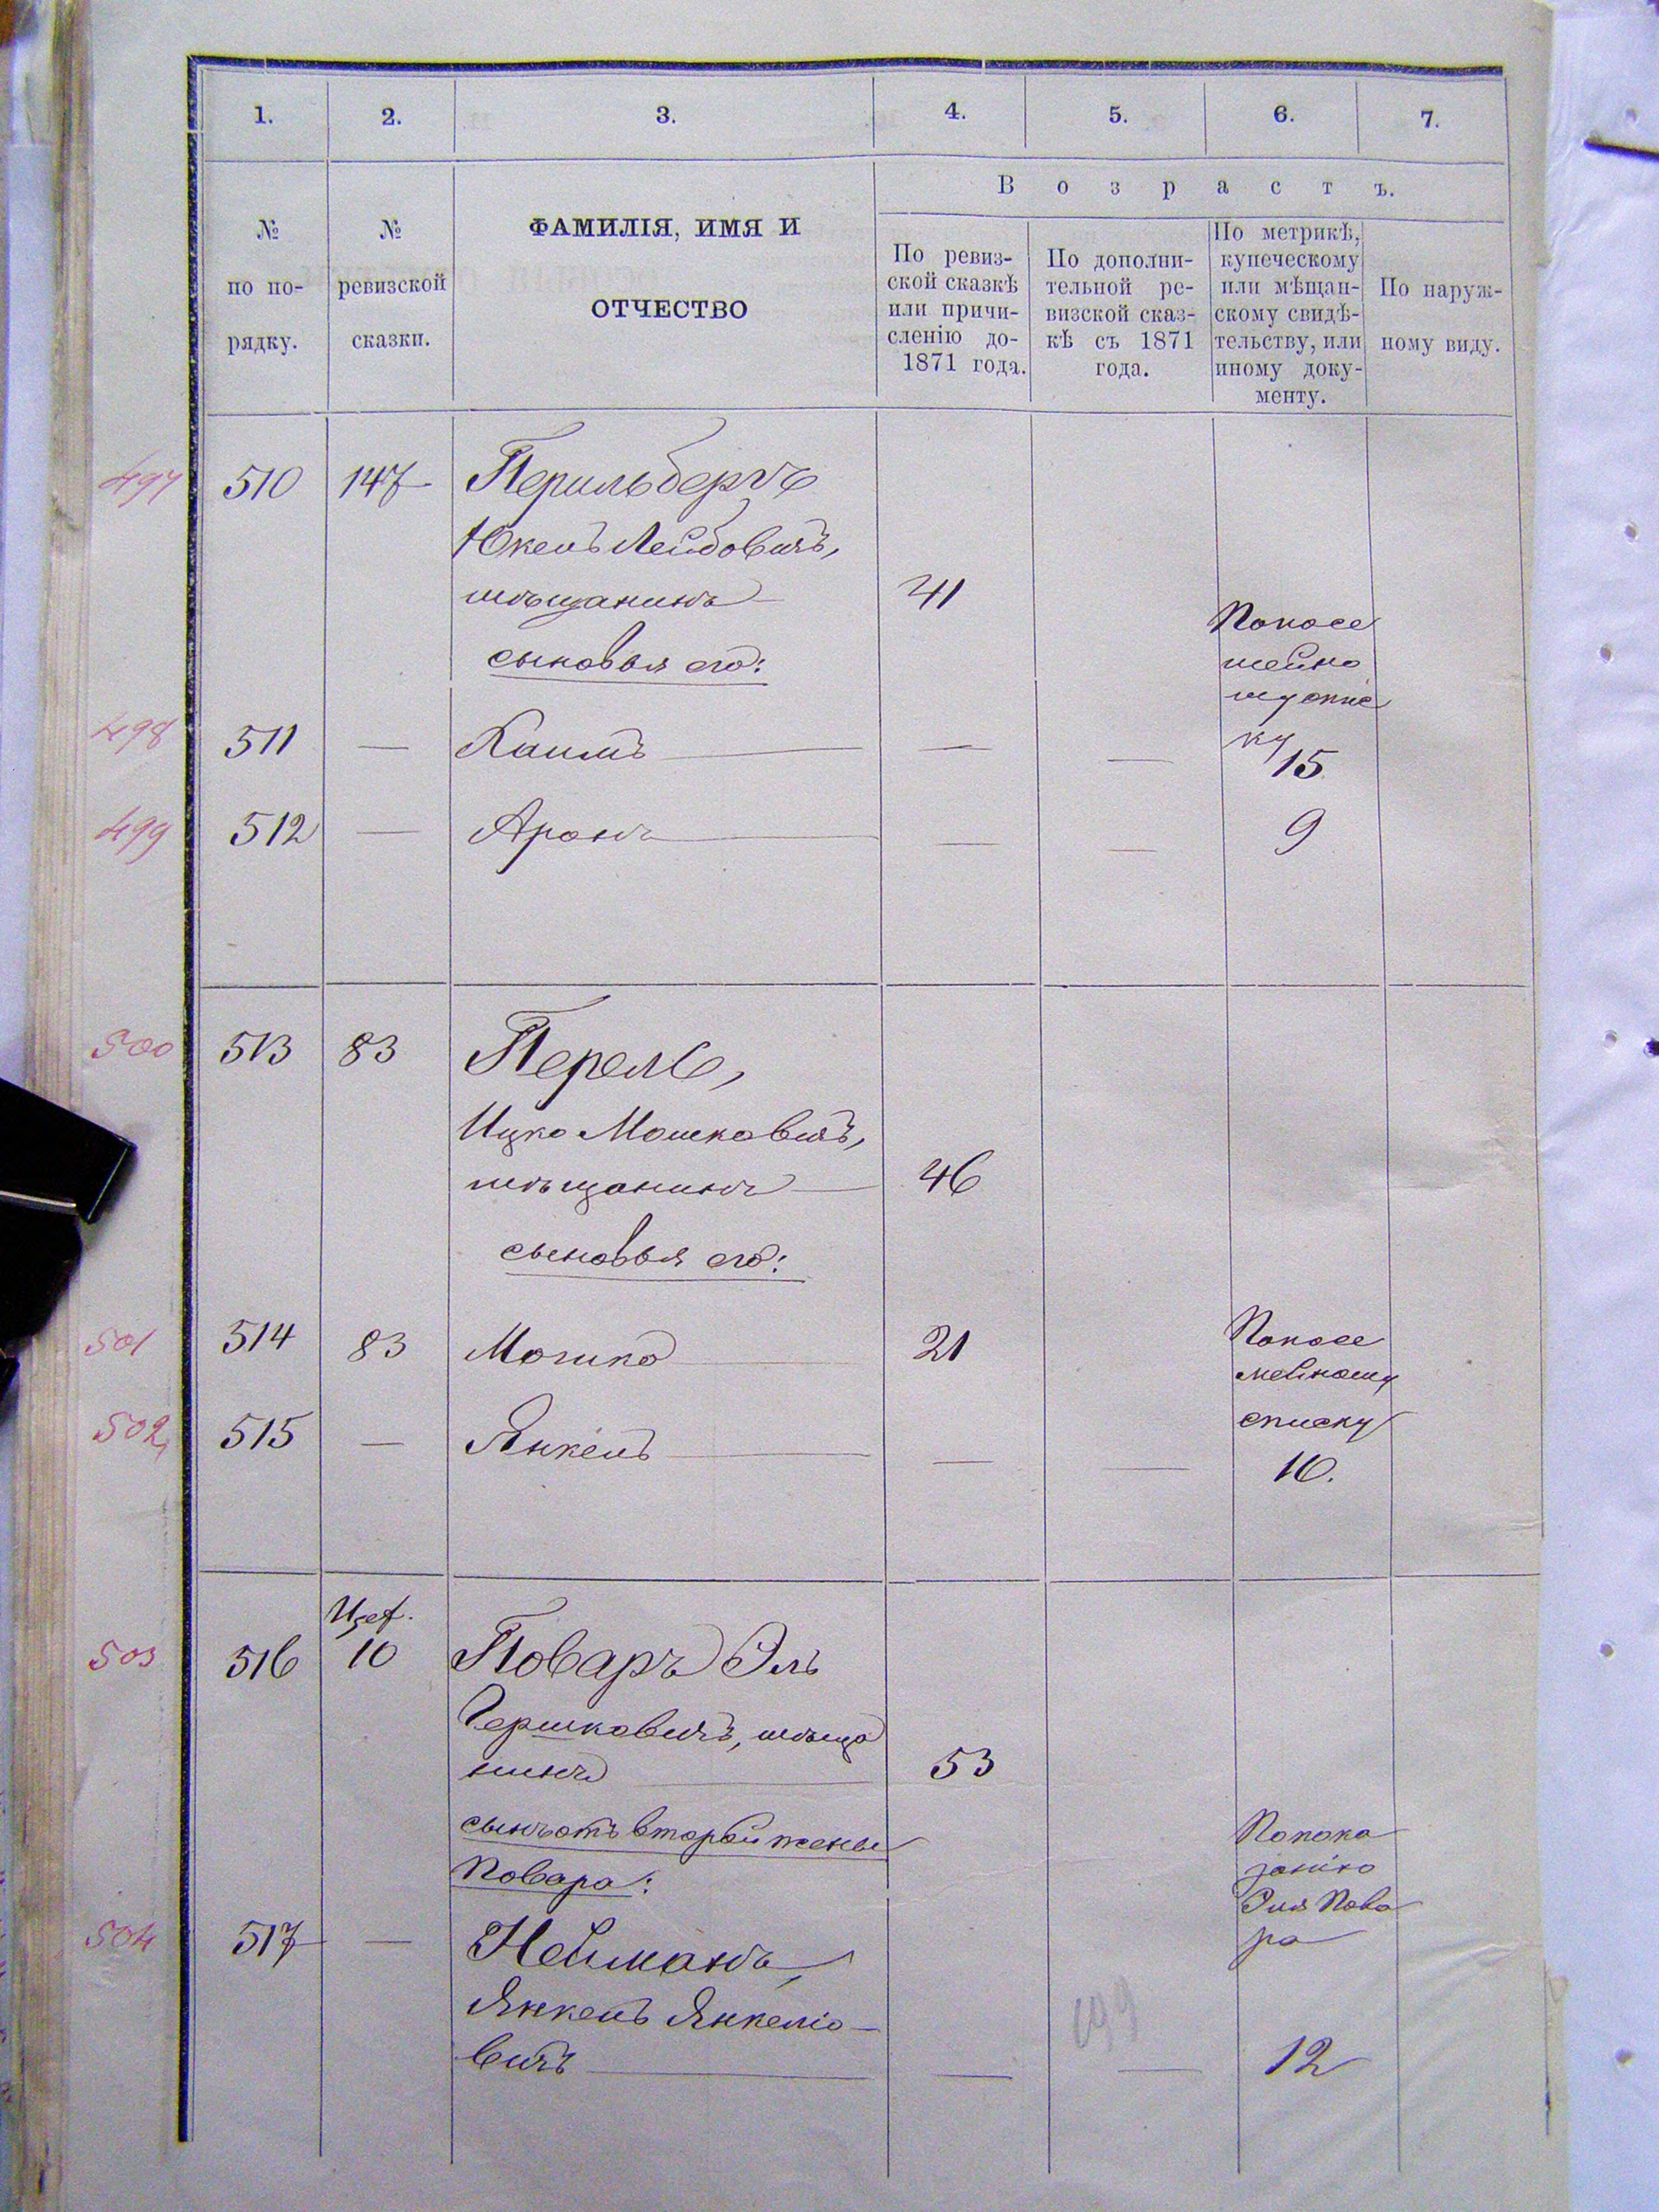 1. 2. 3. 4. 5. 6. 7.
В о з р а с т ъ.
№
по по-
рядку.
№
ревизской
сказки.
ФАМИЛІЯ, ИМЯ И
ОТЧЕСТВО
По ревиз-
ской сказкѣ
или причи-
сленію до-
1871 года.
По дополни-
тельной ре-
визской сказ-
кѣ съ 1871
года.
По метрикѣ,
купеческому
или мѣщан-
скому свидѣ-
тельству, или
иному доку-
менту.
По наруж-
ному виду.
497 510 147 Перильбергъ
Юкель Лейбовичъ,
мѣщанинъ — 41
сыновья его:
Посе
мейно
му спис
ку
498 511 — Хаимъ — — — 15
499 512 — Аронъ — — — 9
500 513 83 Перель,
Ицко Мошковичъ,
мѣщанинъ — 46
сыновья его:
501 514 83 Мошко — 21
Посе
мейному
списку
502 515 — Янкель — — — 16.
503 516 10 Поваръ Эль
Гершковичъ, мѣща
нинъ — 53
сынъ отъ второй жены
Повара:
По пока
занію
Эля Пова
ра
504 517 — Нейманъ,
Янкель Янкеліо-
вичъ — — — 12
199